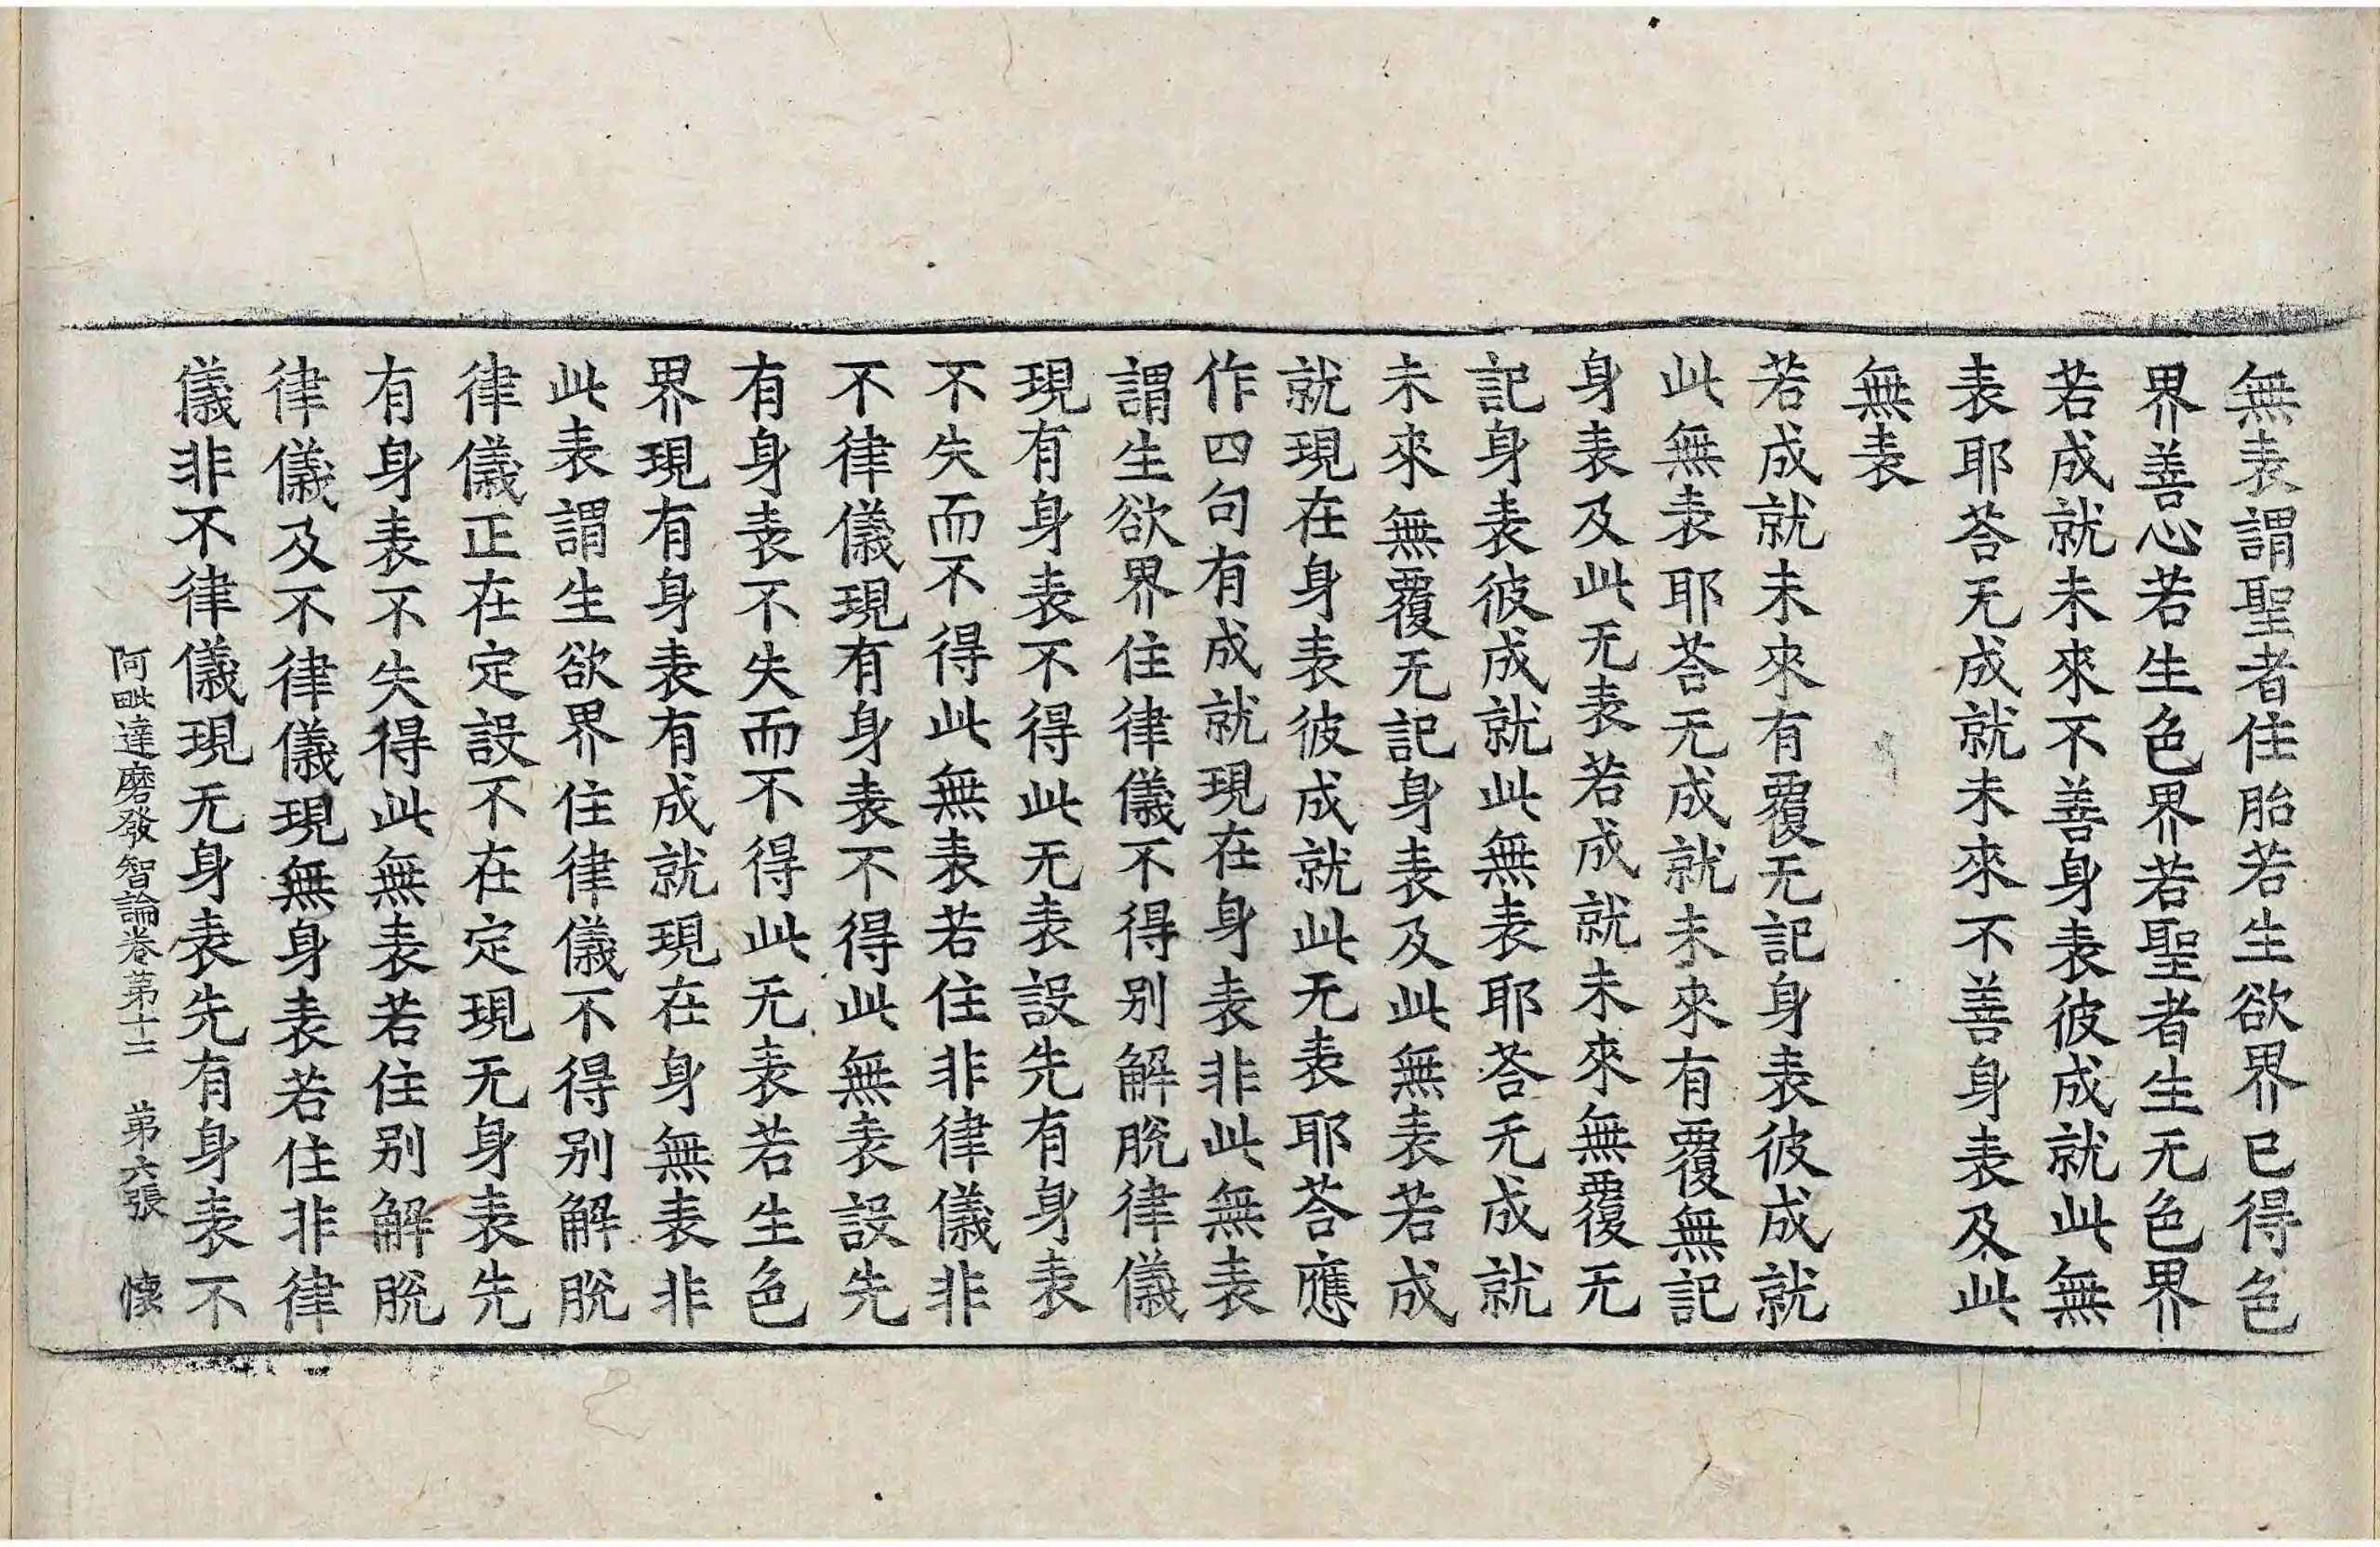 無表謂聖者住胎若生欲界已得色
界善心若生色界若聖者生无色界
若成就未來不善身表彼成就此無
表耶荅无成就未來不善身表及此
無表
若成就未來有覆无記身表彼成就
此無表耶荅无成就未來有覆無記
身表及此无表若成就未來無覆无
記身表彼成就此無表耶荅无成就
未來無覆无記身表及此無表若成
就現在身表彼成就此无表耶荅應
作四句有成就現在身表非此無表
謂生欲界住律儀不得别解脫律儀
現有身表不得此无表設先有身表
不失而不得此無表若住非律儀非
不律儀現有身表不得此無表設先
有身表不失而不得此无表若生色
界現有身表有成就現在身無表非
此表謂生欲界住律儀不得别解脫
律儀正在定設不在定現无身表先
有身表不失得此無表若住别解脫
律儀及不律儀現無身表若住非律
儀非不律儀現无身表先有身表不
阿毗達磨發智論卷第十二 第六張 懐